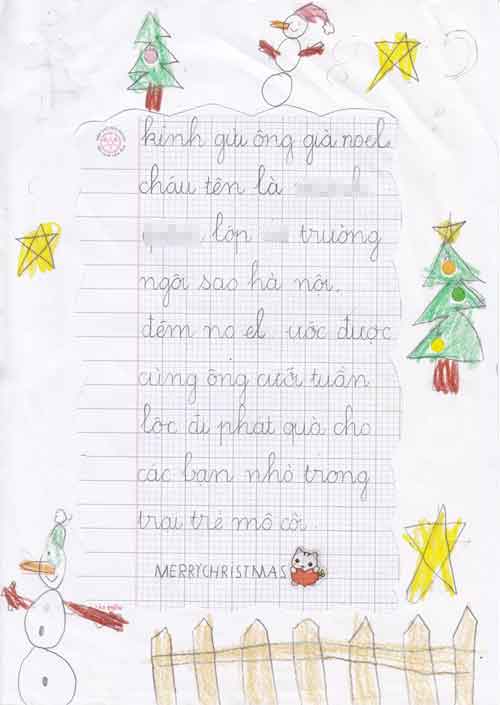 kính gửi ông già noel
cháu tên là
lớp trường
ngôi sao hà nội.
đêm no el ước được
cùng ông cưỡi tuần
lộc đi phát quà cho
các bạn nhỏ trong
trại trẻ mồ côi.
MERRYCHRISTMAS